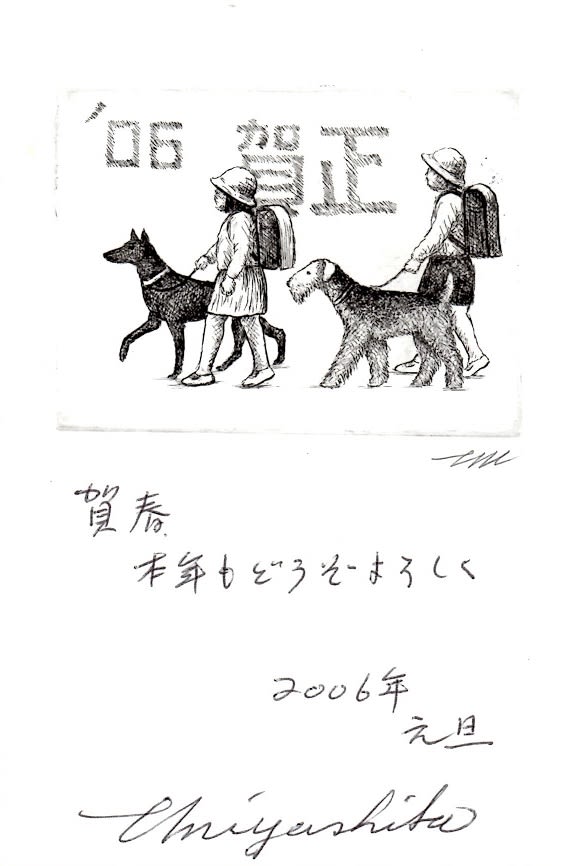 '06 賀正
賀春
本年もどうぞよろしく
2006年
元旦
Miyashita